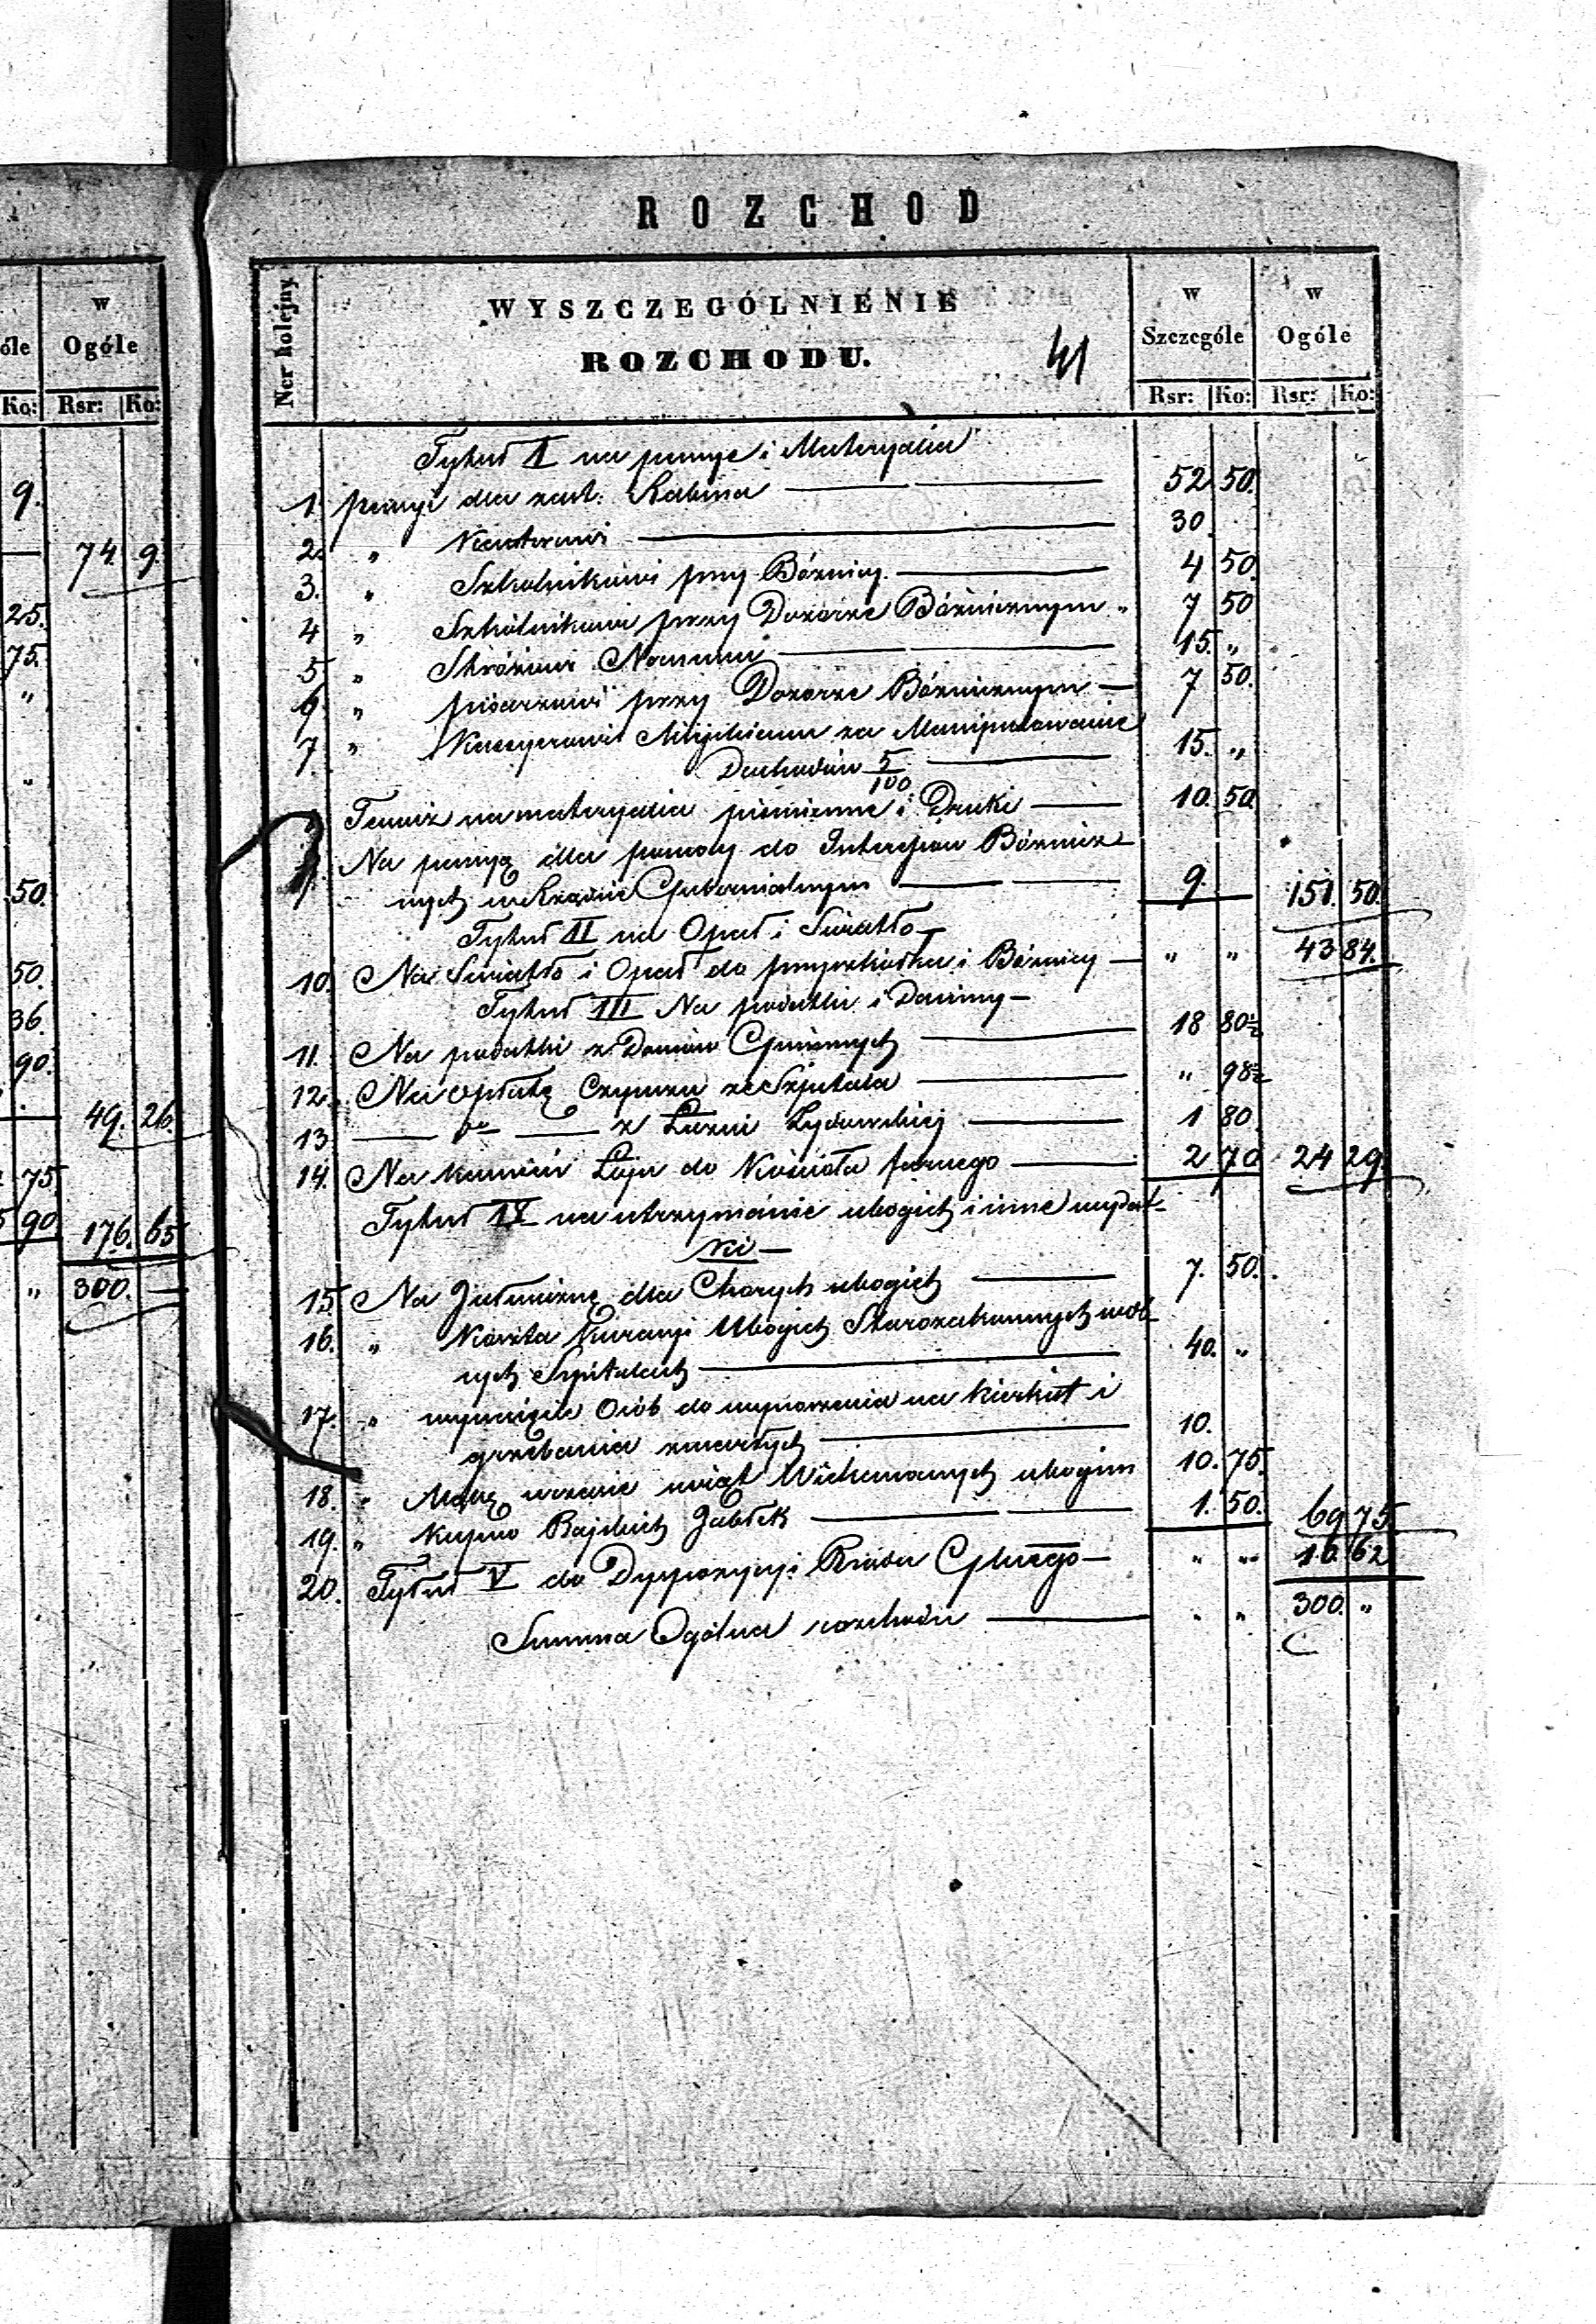 óle
w
Ogóle
Ko: Rsr: Ko:
9.
— 74. 9.
25.
75.
"
"
50.
50.
36.
90.
49. 26.
75
90 176. 65
" 300. —
ROZCHOD
Ner kolejny
WYSZCZEGÓLNIENIE
ROZCHODU.
41
w
Szczególe
w
Ogóle
Rsr: Ko: Rsr: Ko:
Tytuł I na pensye i Materyalia
1. pensyi dla zast. Rabina — 52 50.
2. " Kantorowi — 30
3. " Szkolnikowi przy Bóżnicy. — 4 50.
4 " Szkólnikowi przy Dozorze Bóżnicznym " 7 50
5 " Stróżowi — 15. "
6 " pisarzowi przy Dozorze Bóżnicznym — 7 50.
7. " Kassyerowi Miejskiemu za Manipulowanie
Dochodów 5/100 — 15. "
na materyalia piśmienne i Druki — 10. 50.
9. Na pensyą dla pomocy do Interesów Bóżnicz
nych w Rządzie Gubernialnym — 9. — 151. 50.
Tytuł II na Opał i Światło —
10. Na Światło i Opał do przyszkółka i Bóżnicy — " " 43 84.
Tytuł III Na podatki i Daniny —
11. Na podatki z Domów Gminnych — 18 80½
12. Na opłatę Czynszu ze Szpitala — " 98½
13 — do — z Łaźni Żydowskiej — 1 80.
14. Na kamień Łoju do Kościoła farnego — 2 70 24 29.
Tytuł IV na utrzymanie ubogich i inne wydat-
ki —
15. Na Jałmużnę dla Chorych ubogich — 7. 50.
16. " Koszta Kuracyi Ubogich Starozakonnych w
nych Szpitalach — 40. "
17. " wynajęcie Osób do wynoszenia na kierkut i
grzebania zmarłych — 10.
18. " Mąkę w czasie świąt Wielkanocnych ubogim 10. 75.
19. " Kupno Rajskich Jabłek — 1. 50. 69 75
20. Tytuł V do Dyspozycyi Rządu Gplnego — " " 10. 62
Summa Ogólna rozchodu — " " 300. "